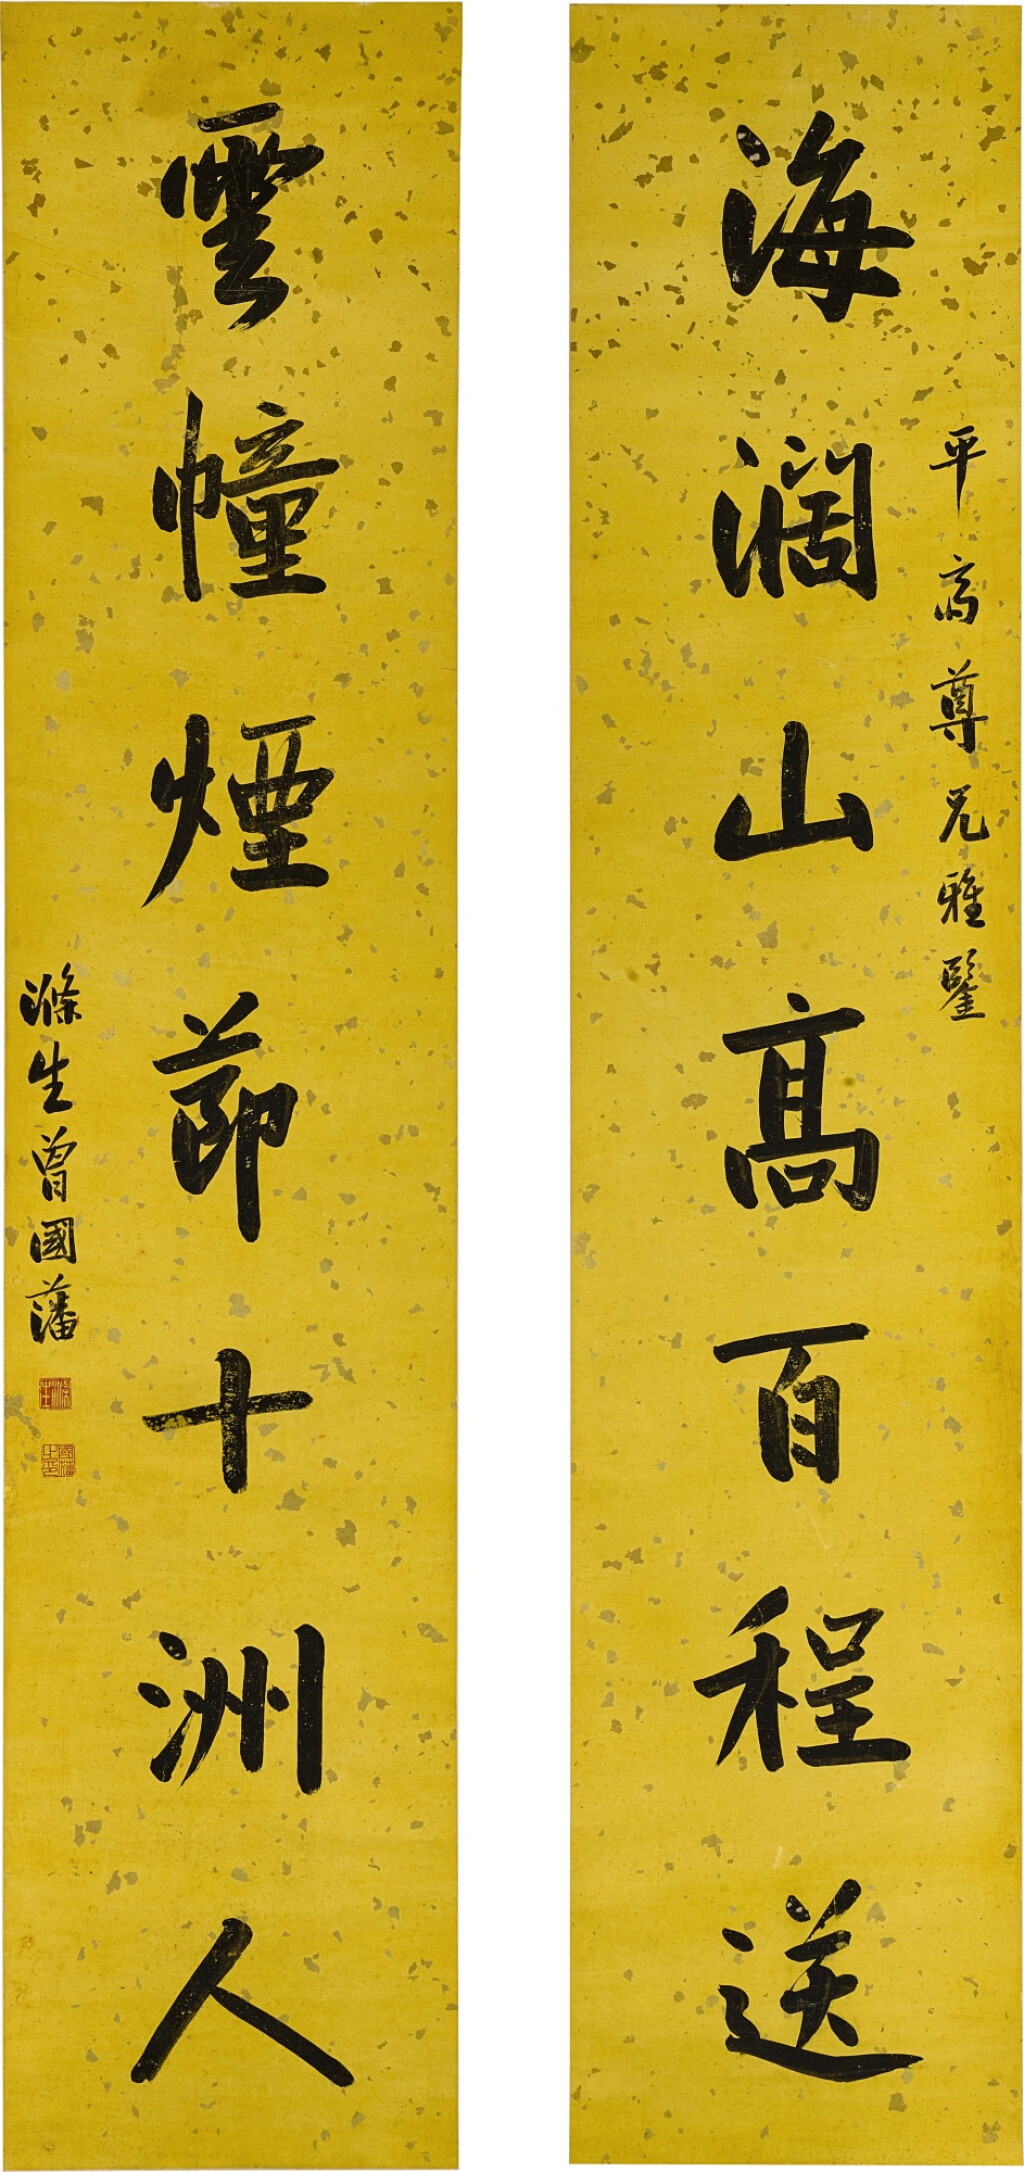 平高尊兄雅鑒
海濶山高百程送
雲幢煙節十洲人
滌生曾國藩
滌生
國藩之印